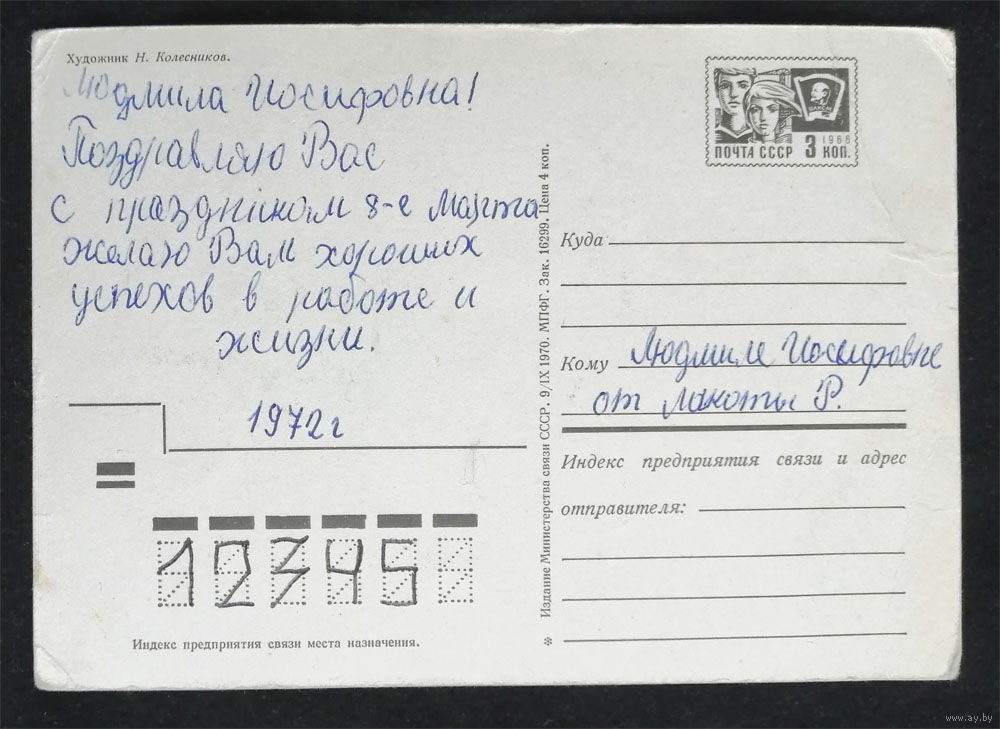 Художник Н. Колесников.
Людмила Иосифовна!
Поздравляю Вас
с праздником 8-е Марта
желаю Вам хороших
успехов в работе и
жизни.
1972 г
12345
Индекс предприятия связи места назначения.
Издание Министерства связи СССР. 9/IX 1970. МПФГ. Зак. 16299. Цена 4 коп.
ВЛКСМ
1966
ПОЧТА СССР 3 КОП.
Куда
Кому Людмиле Иосифовне
от Макоты Р.
Индекс предприятия связи и адрес
отправителя:
www.ay.by